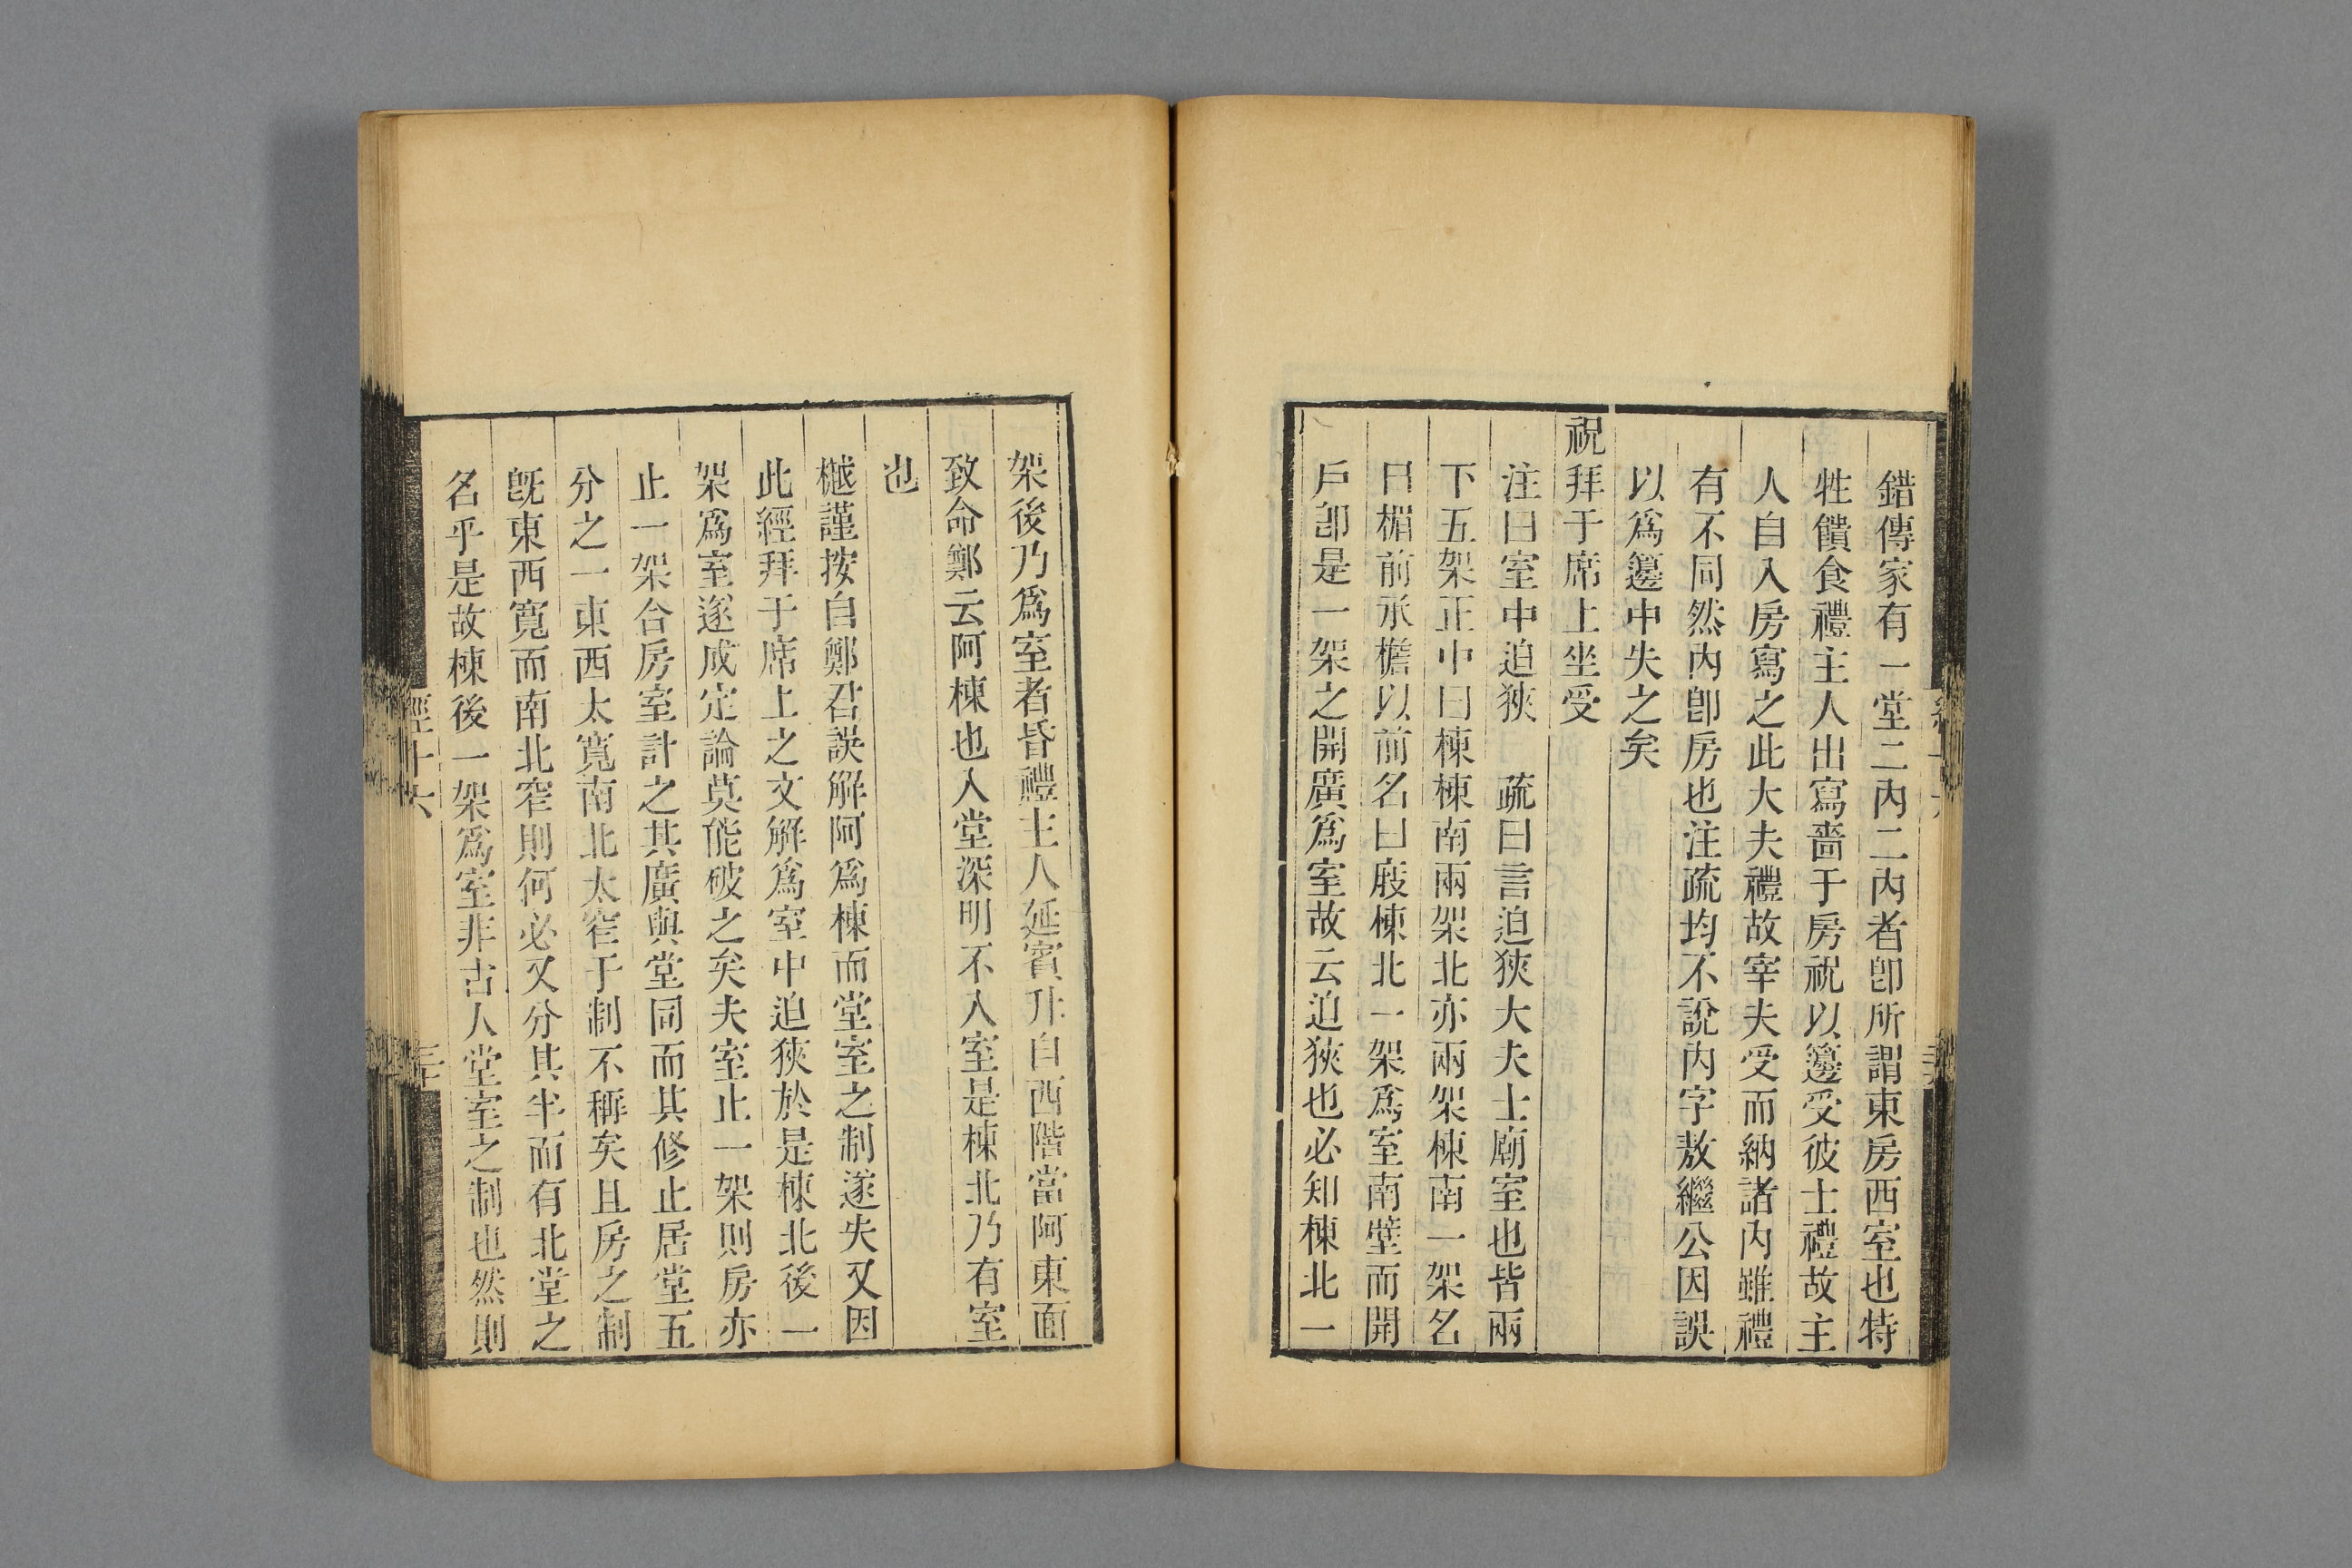 錯傳家有一堂二內二內者卽所謂東房西室也特
牲饋食禮主人出寫嗇于房祝以籩受彼士禮故主
人自入房寫之此大夫禮故宰夫受而納諸內雖禮
有不同然內卽房也注疏均不說內字敖繼公因誤
以爲籩中失之矣
祝拜于席上坐受
注曰室中迫狹　疏曰言迫狹大夫士廟室也皆兩
下五架正中曰棟棟南兩架北亦兩架棟南一架名
曰楣前承檐以前名曰庪棟北一架爲室南壁而開
戶卽是一架之開廣爲室故云迫狹也必知棟北一
架後乃爲室者昏禮主人延賓升自西階當阿東面
致命鄭云阿棟也入堂深明不入室是棟北乃有室
也
樾謹按自鄭君誤解阿爲棟而堂室之制遂失又因
此經拜于席上之文解爲室中迫狹於是棟北後一
架爲室遂成定論莫能破之矣夫室止一架則房亦
止一架合房室計之其廣與堂同而其修止居堂五
分之一東西太寬南北太窄于制不稱矣且房之制
旣東西寬而南北窄則何必又分其半而有北堂之
名乎是故棟後一架爲室非古人堂室之制也然則
經十六